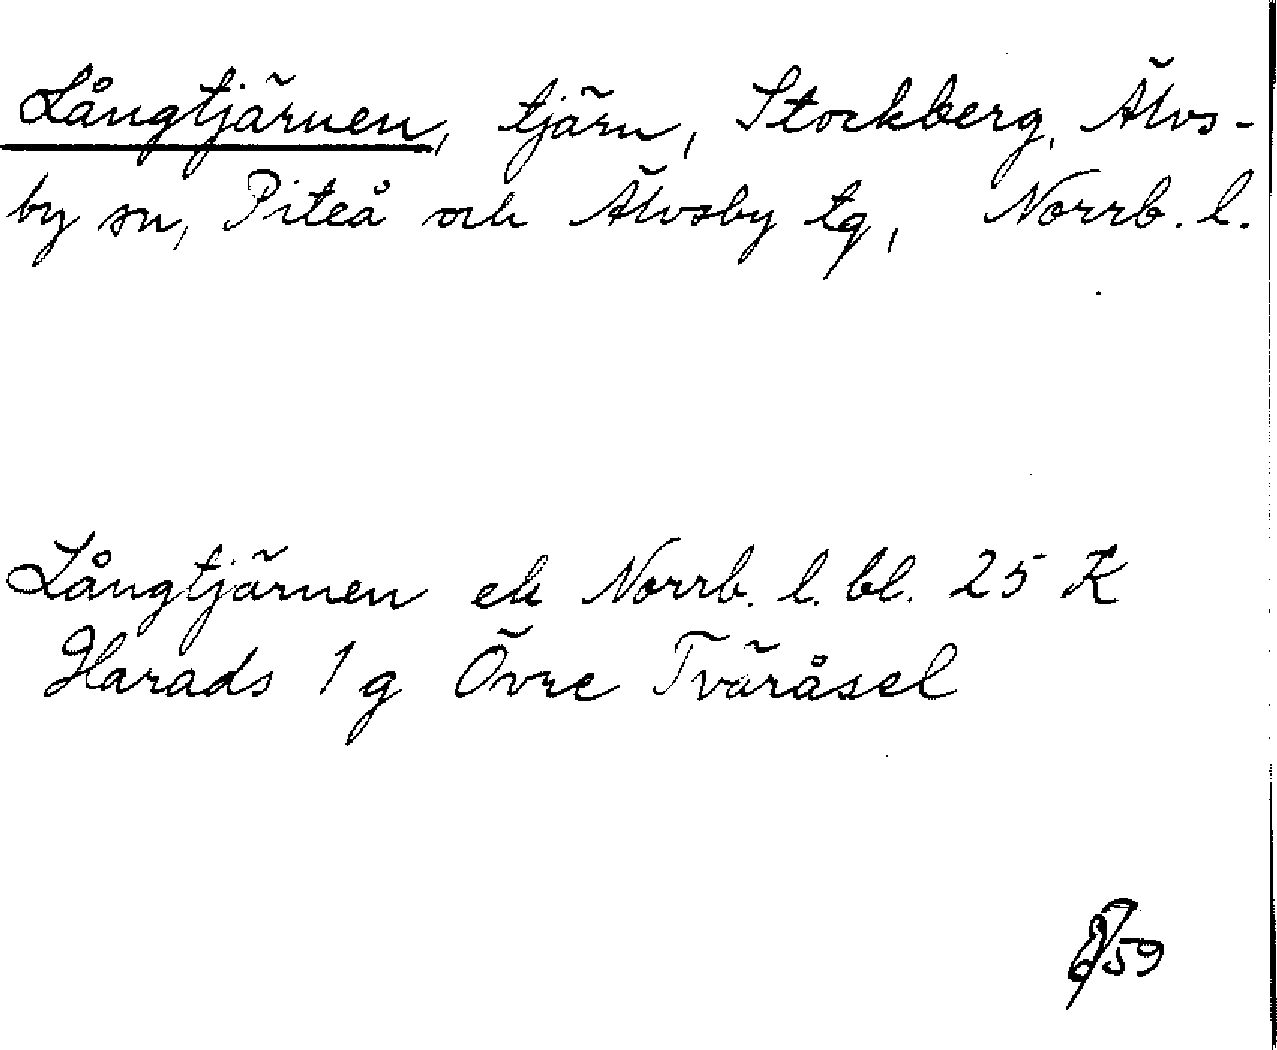 Långtjärnen, tjärn, Stockberg, Älvs-
by sn, Piteå och Älvsby tg, Norrb. l.
Långtjärnen ek Norrb. l. bl. 25 K
Harads 1 g Övre Tväråsel
59